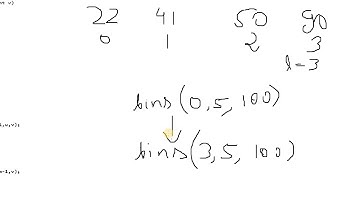 22 41 50 90
0 1 2 3
l=3
bins(0,5,100)
bins(3,5,100)